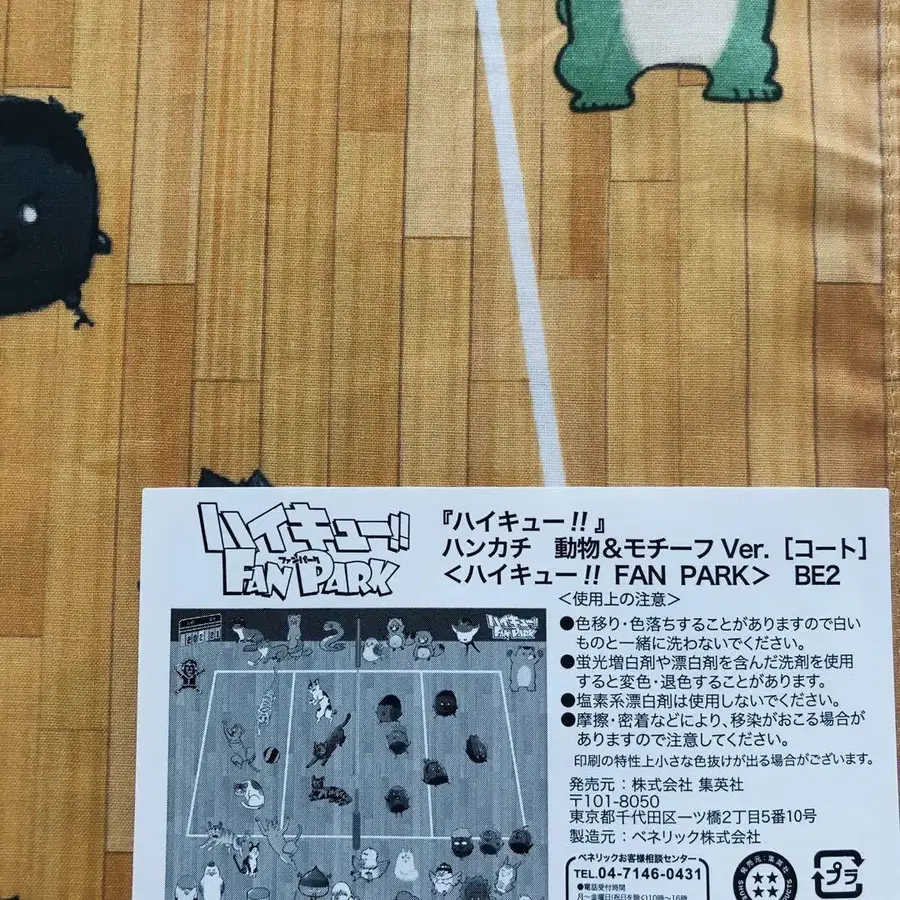 ハイキュー!!
ファンパーク
FAN PARK
『ハイキュー!!』
ハンカチ 動物&モチーフ Ver.［コート］
＜ハイキュー!! FAN PARK＞ BE2
＜使用上の注意＞
●色移り・色落ちすることがありますので白い
ものと一緒に洗わないでください。
●蛍光増白剤や漂白剤を含んだ洗剤を使用
すると変色・退色することがあります。
●塩素系漂白剤は使用しないでください。
●摩擦・密着などにより、移染がおこる場合が
ありますので注意してください。
印刷の特性上小さな色抜けが出る場合がございます。
発売元：株式会社 集英社
〒101-8050
東京都千代田区一ツ橋2丁目5番10号
製造元：ベネリック株式会社
ベネリックお客様相談センター
TEL.04-7146-0431
●電話受付時間
月〜金曜日(祝日を除く)10時〜16時
発売元：集英社
プラ
ハイキュー!!
FAN PARK